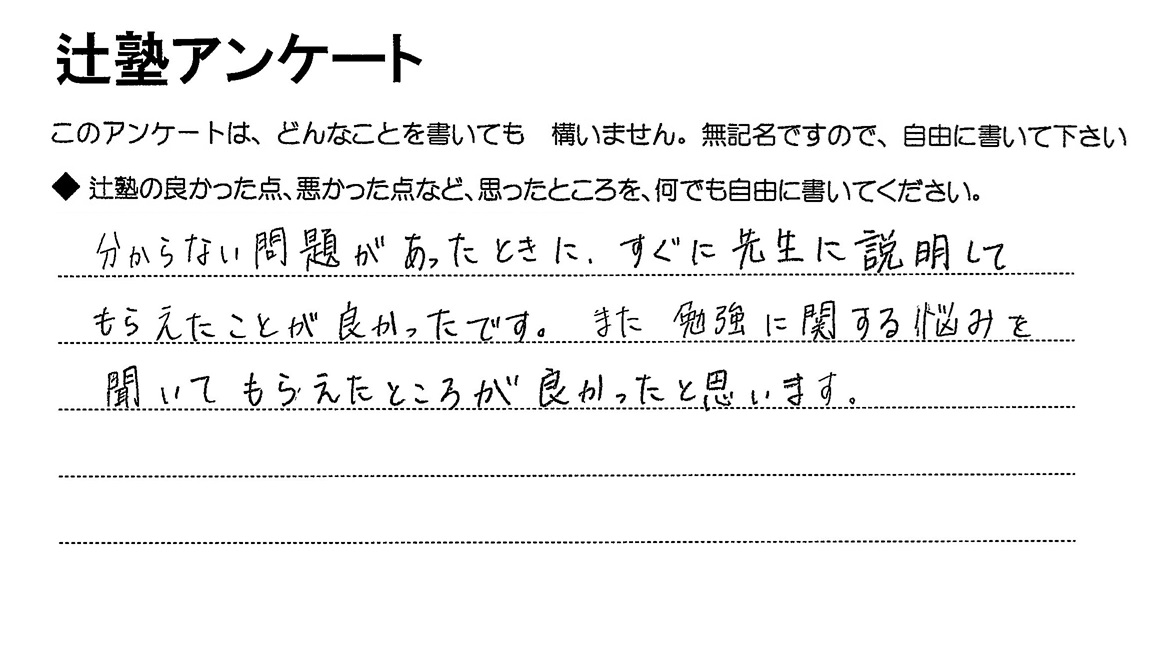 辻塾アンケート
このアンケートは、どんなことを書いても　構いません。無記名ですので、自由に書いて下さい
◆ 辻塾の良かった点、悪かった点など、思ったところを、何でも自由に書いてください。
分からない問題があったときに、すぐに先生に説明して
もらえたことが良かったです。また 勉強に関する悩みを
聞いてもらえたところが良かったと思います。